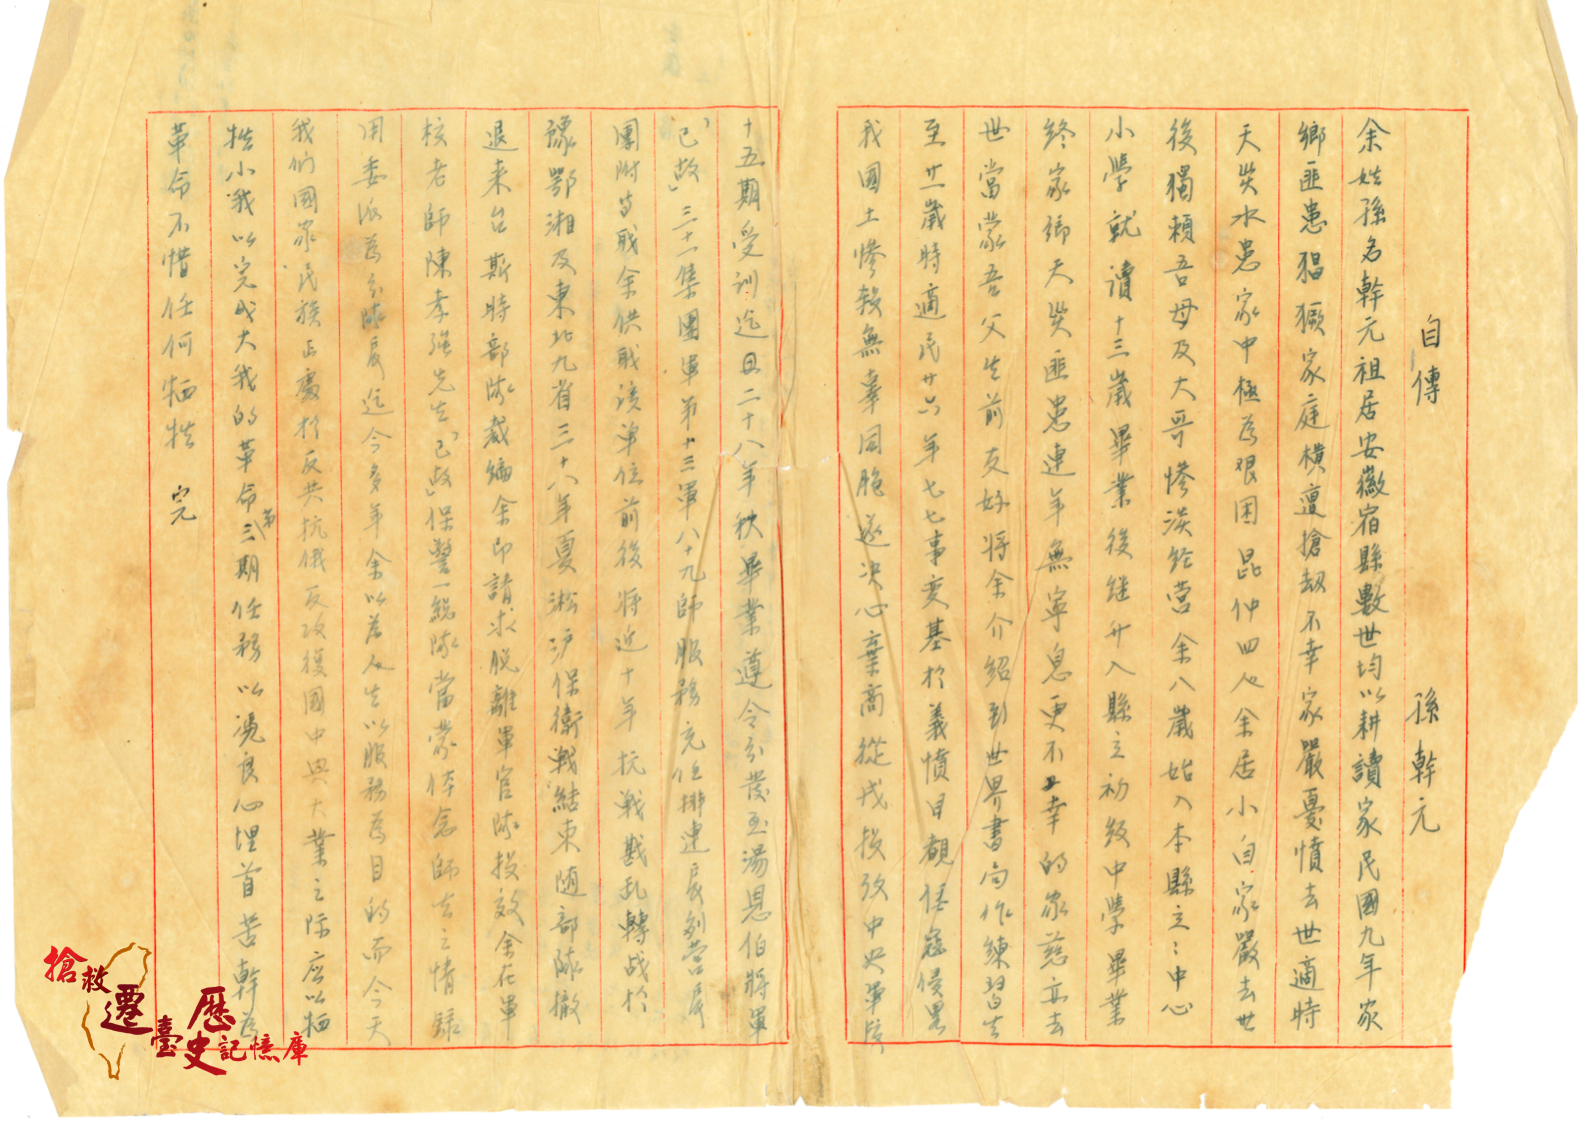 自傳 孫幹元
余姓孫名幹元祖居安徽宿縣數世均以耕讀家民國九年家
鄉匪患猖獗家庭橫遭搶劫不幸家嚴憂憤去世適時
天災水患家中極為艰困昆仲四人余居小自家嚴去世
後獨賴吾母及大哥慘淡经营余八歲始入本縣立:中心
小學就讀十三歲畢業後继升入縣立初級中學畢業
終家鄉天災匪患連年無寧息更不幸的家慈亦去
世當蒙吾父生前友好將余介紹到世界書局作練習生
至廿一歲時適民廿六年七七事变基於義憤目覩倭寇侵畧
我國土慘殺無辜同胞遂决心棄商從戎投效中央軍校
十五期受訓迄民二十八年秋畢業遵令分發至湯恩伯將軍
「已故」三十一集團軍第十三軍八十九師服務充任排連長副營長
團附等職余供職该單位前後將近十年抗戰戡乱轉战於
豫鄂湘及東北九省三十八年夏淞沪保衛戰結束随部隊撤
退来台斯時部隊裁编余即請求脱離軍官隊投效余在軍
校老師陳孝強先生「已故」保警一総隊當蒙体念師生之情録
用委派為分隊長迄今多年余以為人生以服務為目的而今天
我们國家民族正處於反共抗俄反攻復國中興大業之际应以牺
牲小我以完成大我的革命第三期任務以憑良心埋首苦幹為
革命不惜任何牺牲 完
搶救遷臺歷史記憶庫